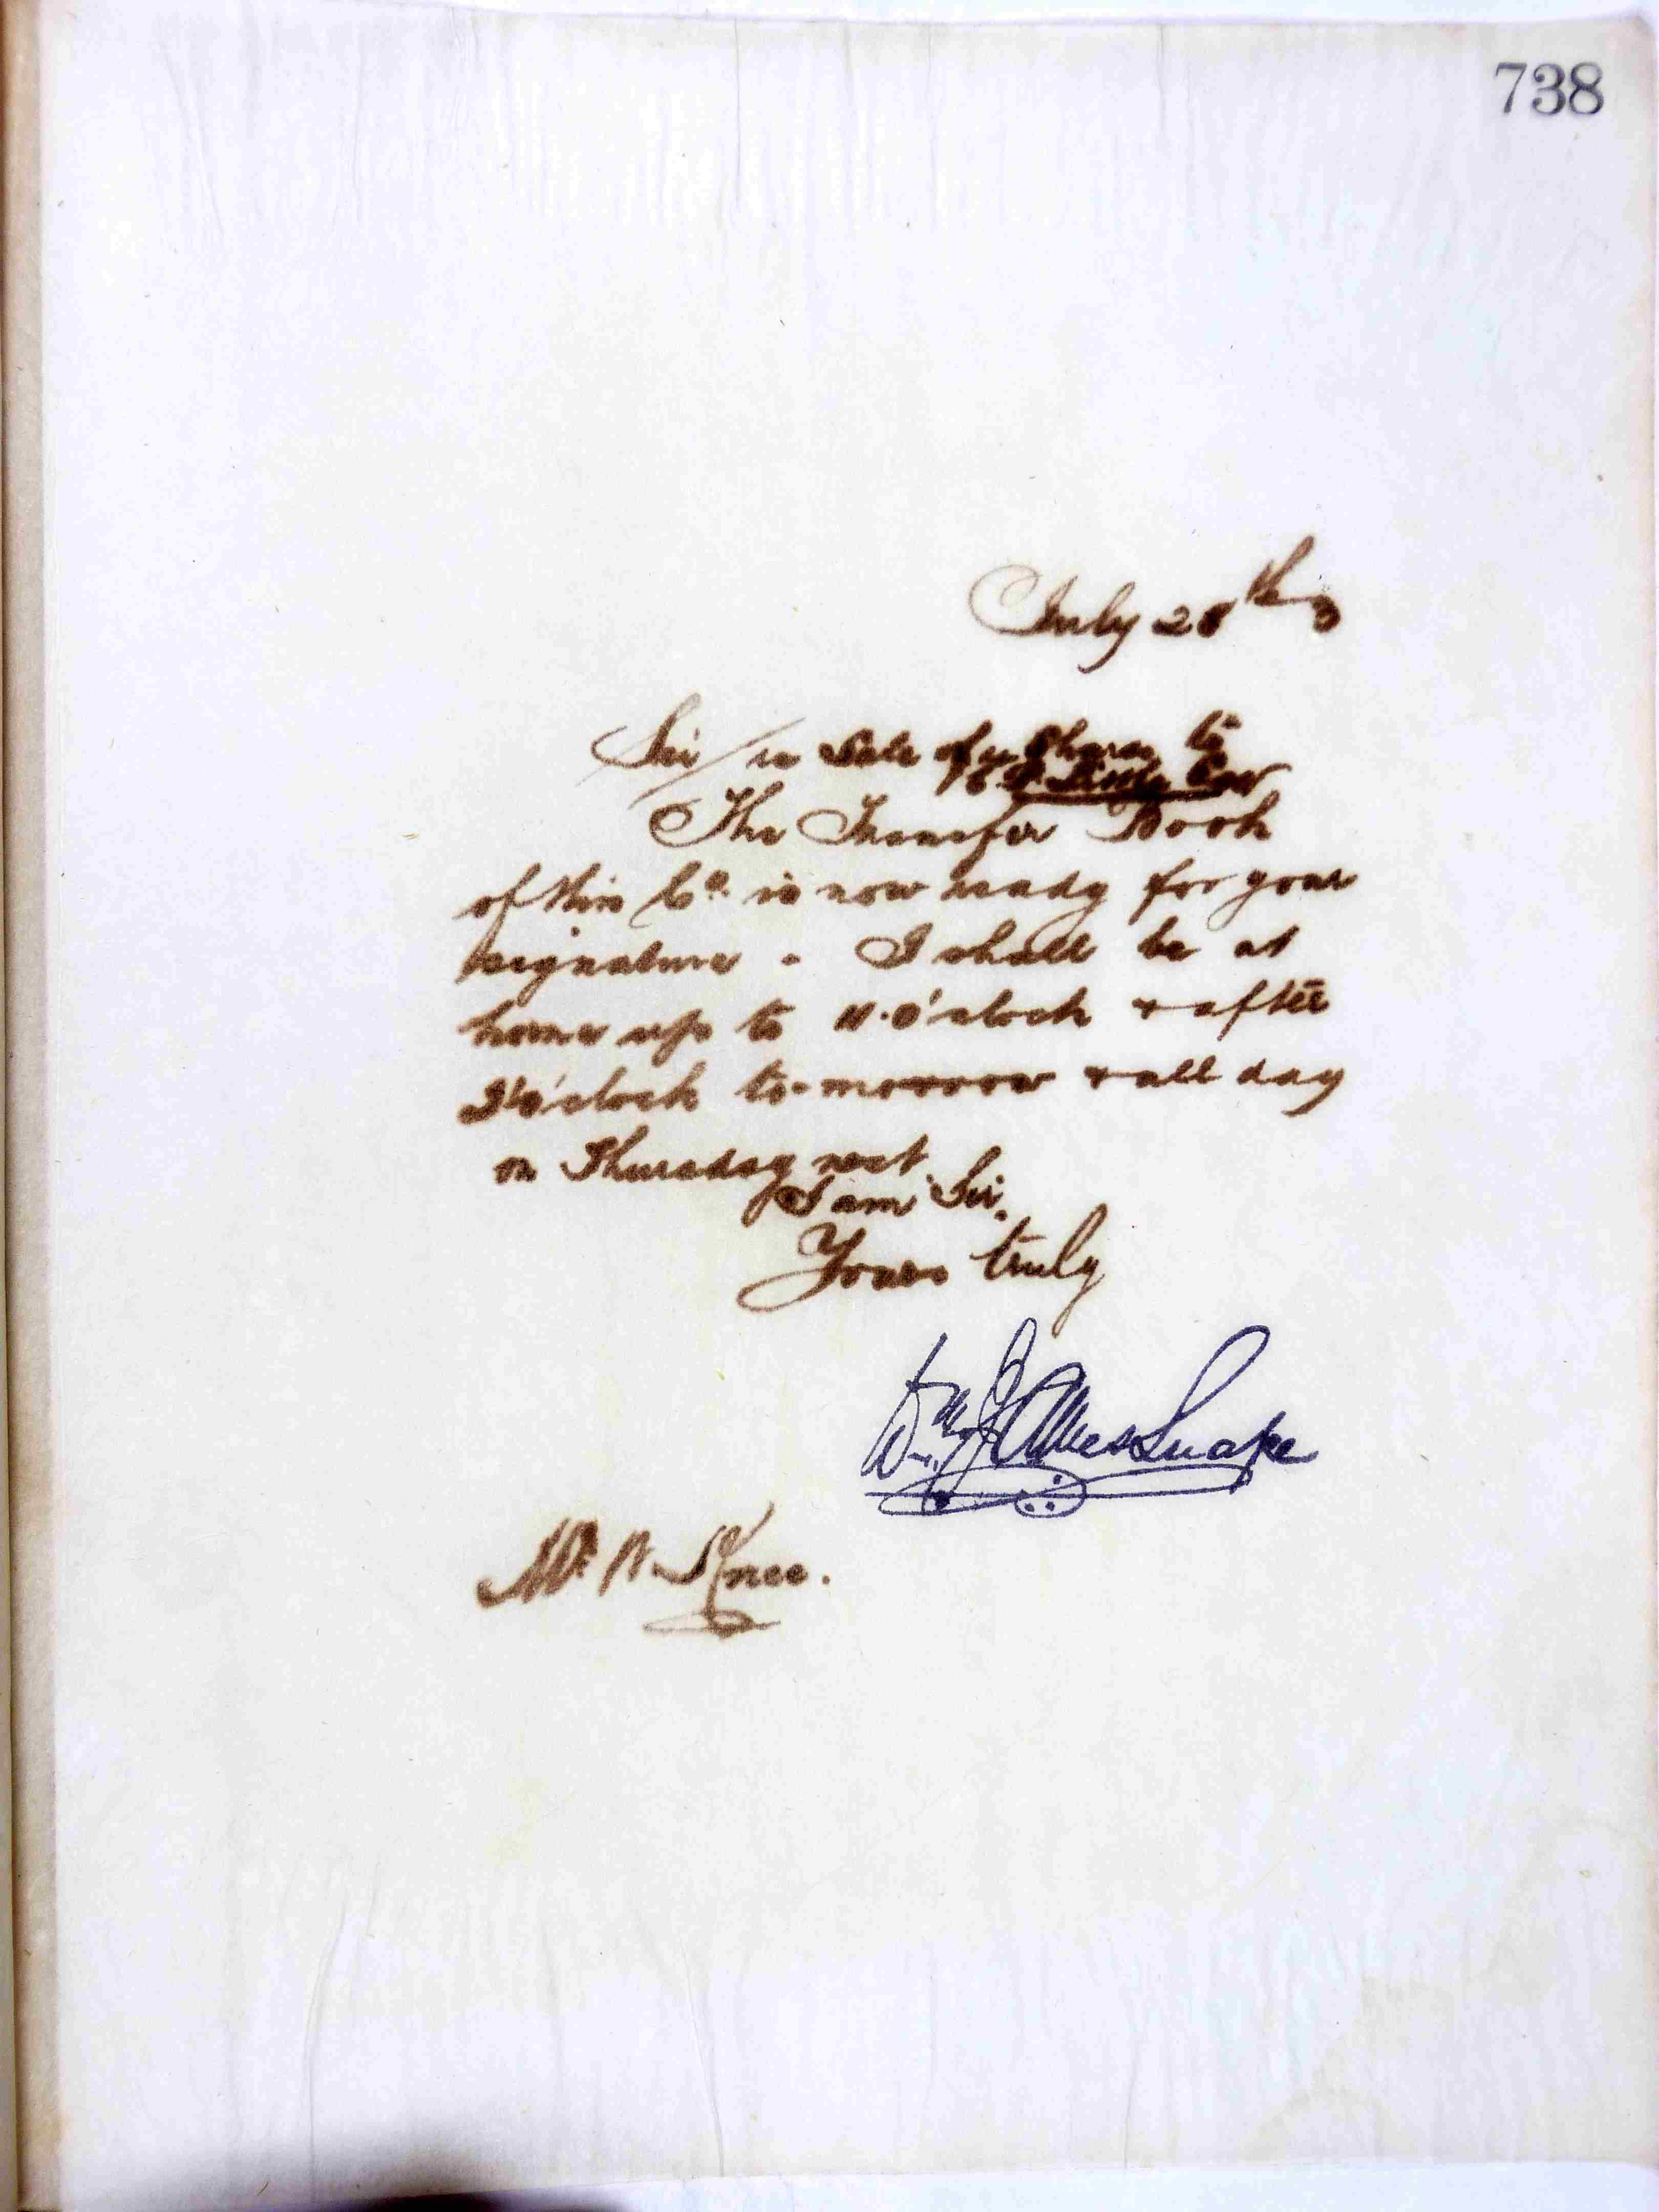 738
July 28th
Sir / re Sale of yr Shares to
The Transfer Book
of this Co. is now ready for your
signature - I shall be at
home up to 11.O'clock & after
3'O'clock to-morrow & all day
on Thursday next.
I am Sir.
Yours truly
Snape
Mr. Knee.